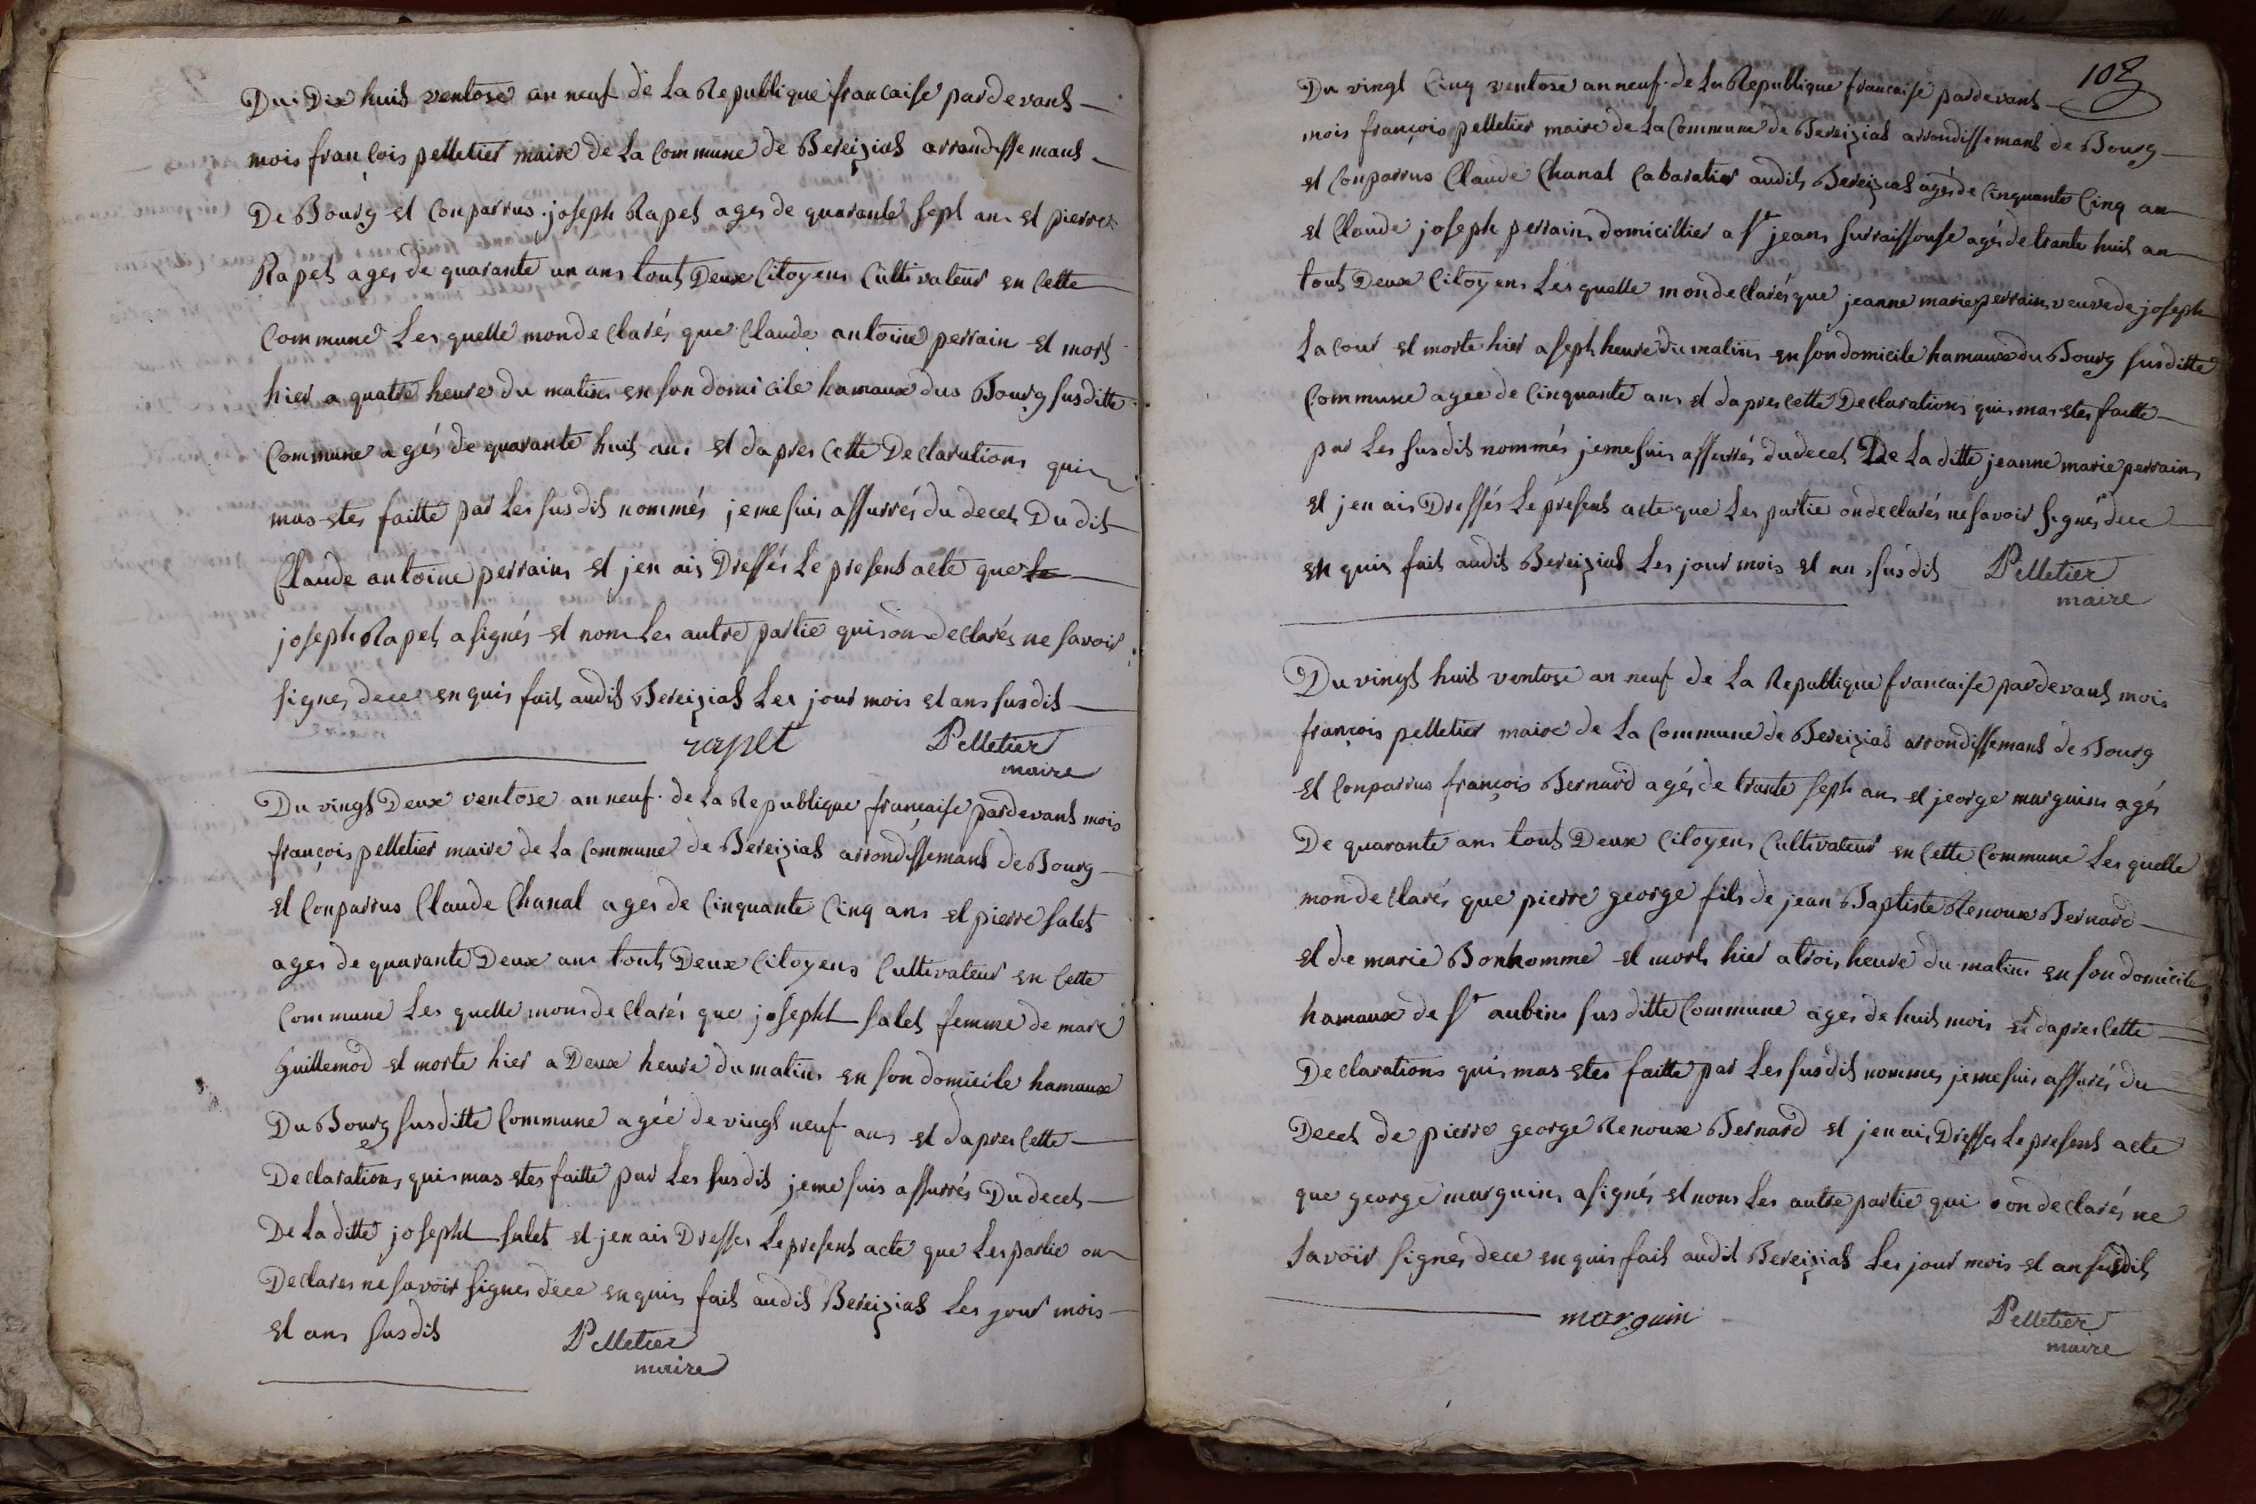 Dui Dix huit ventose an neuf de La Republique francaise pardevant
mois francois pelletier maire de La Commune de Bereiziat arrondissemant
De Bourg et Conparrus joseph Rapet ages de quarante sept ans et pierre
Rapet ages de quarante un ans tout Deux Citoyens Cultivateur en Cette
Commune Les quelle monde clarés que Claude antoine perrain et mort
hier a quatre heure du matins en son domicile hamaux dus Bourg susditte
Commune agés de quarante huit ans et dapres Cette Declarations quis
mas etes faitte par Les susdit nommés jeme suis assurrés du deces Du dit
Claude antoine perrains et jen ais Dressés Le present acte que le
joseph Rapet a signés et nom Les autre partie quis on declarés ne savoir
signes dece enquis fait audit Bereiziat Les jour mois et ans susdit
rapet Pelletier
maire
Du vingt Deux ventose an neuf de La Republique francaise pardevant mois
françois pelletier maire de La Commune de Bereiziat arrondissemant de Bourg
et Conparrus Claude Chanal ages de Cinquante Cinq ans et pierre salet
ages de quarante Deux ans tout Deux Citoyens Cultivateur en Cette
Commune Les quelle mons de clarés que josepht salet femme de marc
Guillemod et morte hier a Deux heure du matins en son domicile hamaux
Du Bourg susditte Commune agée de vingt neuf ans et dapres Cette
Declarations quis mas etes faitte par Les susdit jeme suis assurrés Du deces
De La ditte josepht salet et jen ais Dresses Le present acte que Les partie on
Declares ne savoir signes dece enquis fait audit Bereiziat Les jour mois
et ans susdit Pelletier
maire
103
Du vingt Cinq ventose an neuf de La Republique francaise pardevant
mois françois pelletier maire de La Commune de Bereiziat arrondissemant de Bourg
et Conparrus Claude Chanal Cabaratier audit Bereiziat agés de Cinquante Cinq an
et Claude joseph perrains domicillier a st jeans surraissouse agés de trante huit an
tout Deux Citoyens Les quelle monde clarés que jeanne marie perrains veuve de joseph
La Cour et morte hier a sept heure du matins en son domicile hamaux du Bourg susditte
Commune agee de Cinquante ans et dapres cette Declarations quis mas etes faitte
par Les susdit nommés jeme suis assurrés du deces De La ditte jeanne marie perrains
et jen ais Dressés Le present acte que Les partie on declarés ne savoir signés dece
en quis fait audit Bereiziat Les jour mois et ans susdit Pelletier
maire
Du vingt huit ventose an neuf de La Republique francaise pardevant mois
françois pelletier maire de La Commune de Bereiziat arrondissemant de Bourg
et Conparrus françois Bernard agés de trante sept ans et jeorge marguins agés
De quarante ans tout Deux Citoyens Cultivateur en Cette Commune Les quelle
monde clarés que pierre george fils de jean Baptiste Renoux Bernard
et de marie Bonhomme et mort hier a trois heure du matins en son domicile
hamaux de st aubins susditte Commune ages de huit mois et dapres Cette
Declarations quis mas etes faitte par Les susdit nommes jeme suis assurés du
Deces de pierre george Renoux Bernard et jen ais Dresses Le present acte
que george marguins a signés et nons Les autre partie qui on declarés ne
savoir signés dece enquis fait audit Bereiziat Les jour mois et an susdit
marguin Pelletier
maire